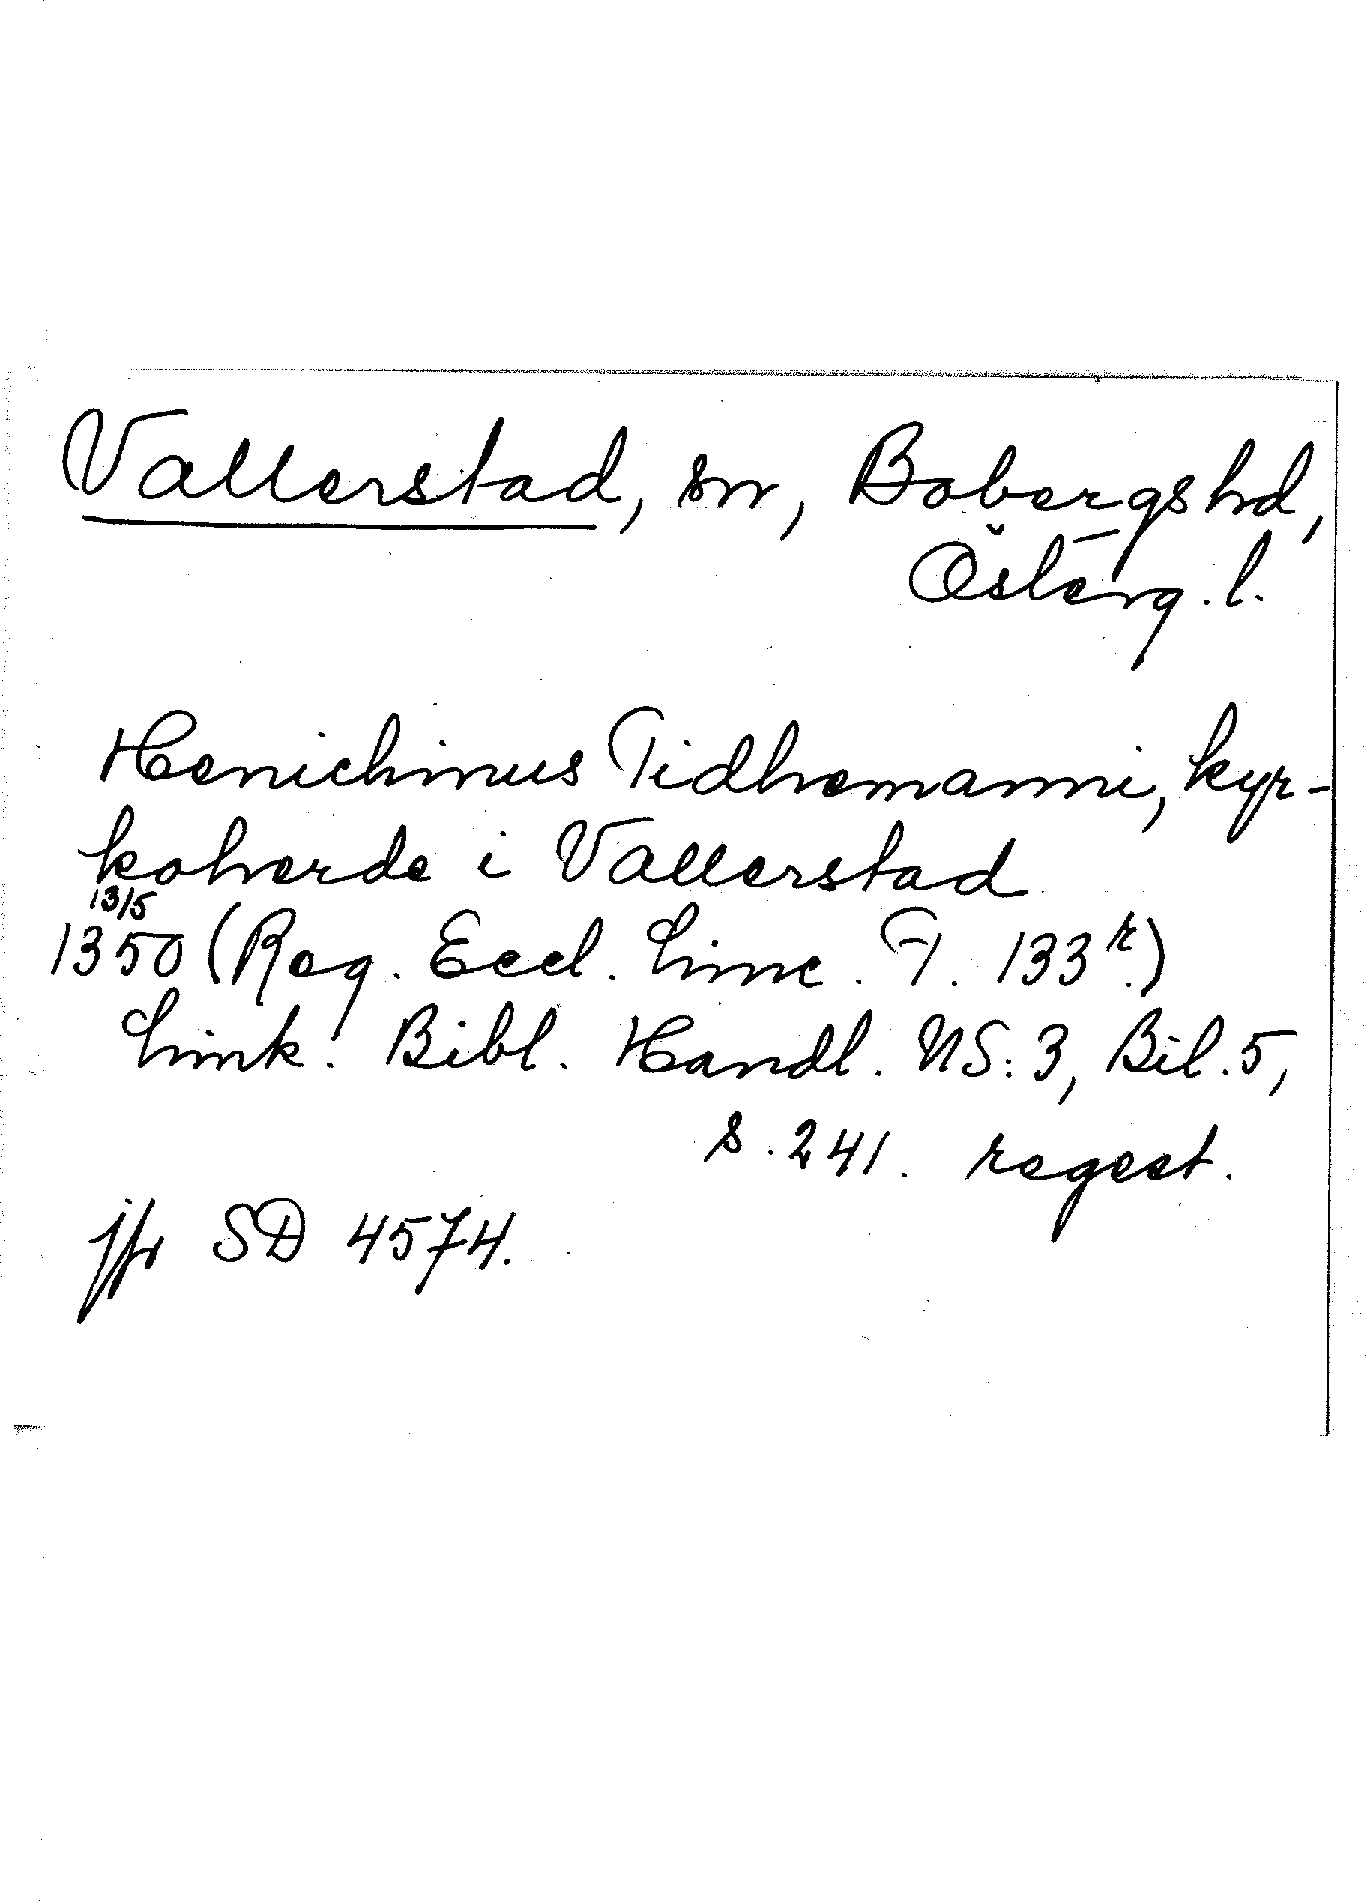 Vallerstad, sn, Bobergs hd,
Österg. l.
Henichinus Tidhemanni, kyr-
koherde i Vallerstad
13/5
1350 (Reg. Eccl. Linc. F. 133r.)
Link. Bibl. Handl. NS: 3, Bil. 5,
s. 241. regest.
jfr SD 4574.